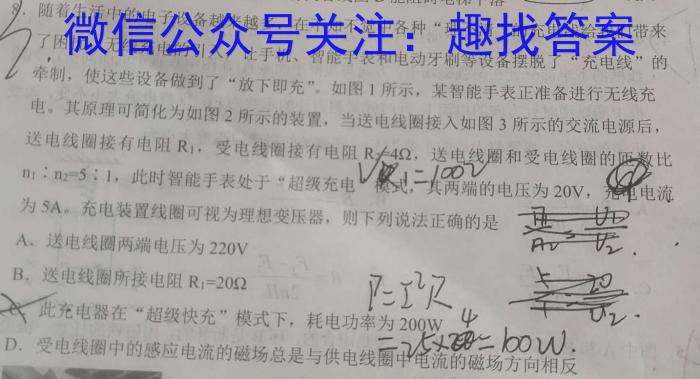 8. 随着生活中的电子设备越来越多
微信公众号关注：趣找答案
牵制，使这些设备做到了“放下即充”。如图1所示，某智能手表正准备进行无线充
电。其原理可简化为如图2所示的装置，当送电线圈接入如图3所示的交流电源后，
送电线圈接有电阻 R₁，受电线圈接有电阻 R₂=4Ω，送电线圈和受电线圈的匝数比
n₁∶n₂=5∶1，此时智能手表处于“超级快充”模式，其两端的电压为20V，充电电流
为5A。充电装置线圈可视为理想变压器，则下列说法正确的是
A. 送电线圈两端电压为220V
B. 送电线圈所接电阻 R₁=20Ω
C. 此充电器在“超级快充”模式下，耗电功率为200W
D. 受电线圈中的感应电流的磁场总是与供电线圈中电流的磁场方向相反
=100V
P=I²R
=100W.